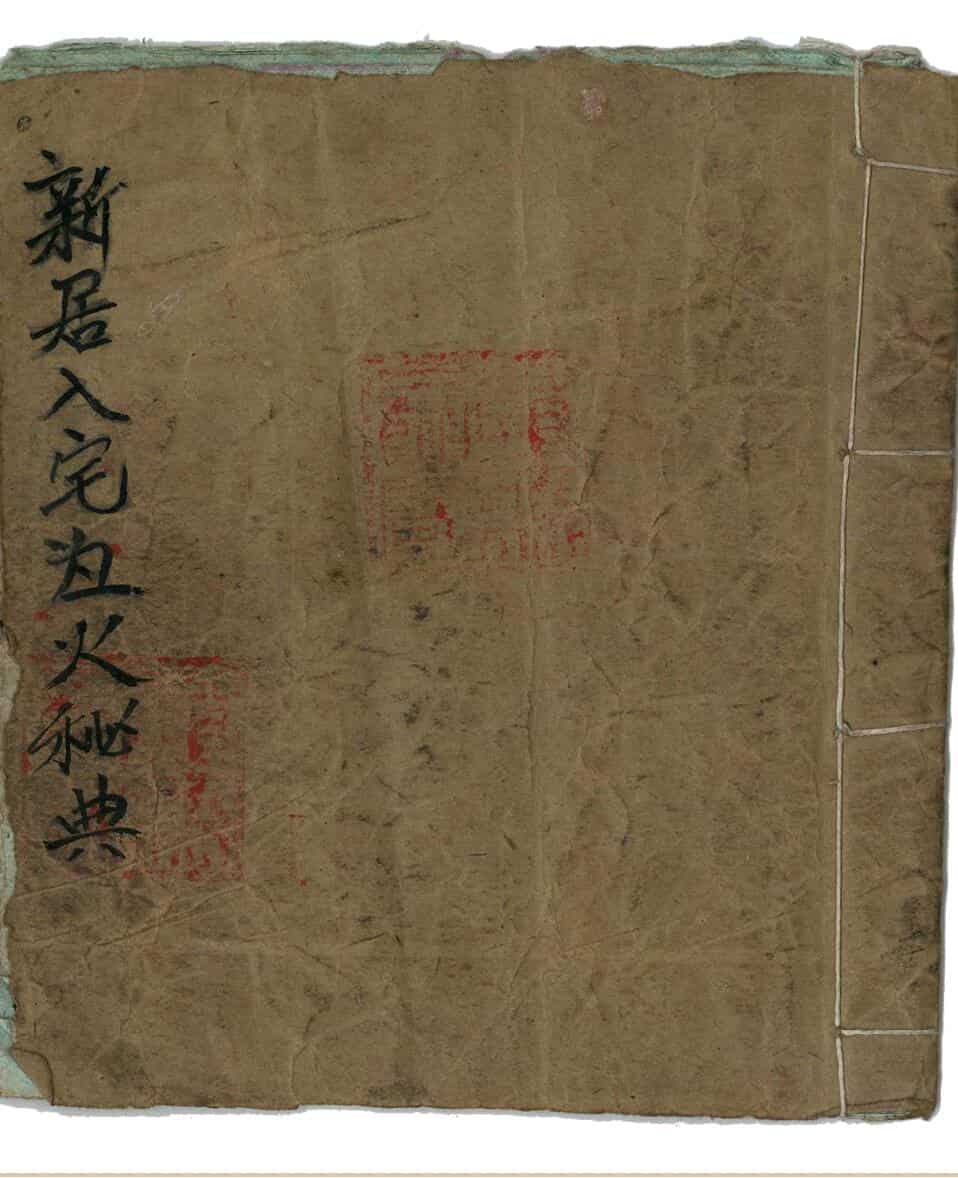 新居入宅火秘典